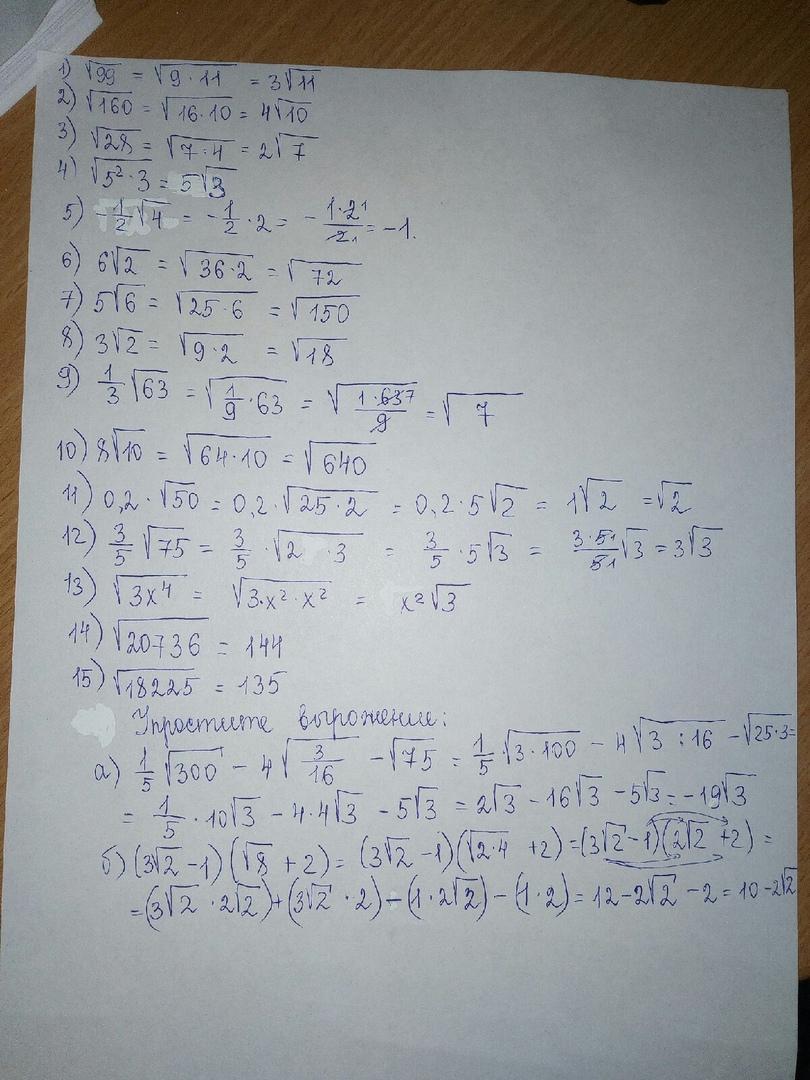 1) √99 = √9·11 = 3√11
2) √160 = √16·10 = 4√10
3) √28 = √7·4 = 2√7
4) √5²·3 = 5√3
5) -1/2√4 = -1/2·2 = -1·2¹/2₁ = -1.
6) 6√2 = √36·2 = √72
7) 5√6 = √25·6 = √150
8) 3√2 = √9·2 = √18
9) 1/3√63 = √1/9·63 = √1·63⁷/9 = √7
10) 8√10 = √64·10 = √640
11) 0,2·√50 = 0,2·√25·2 = 0,2·5√2 = 1√2 = √2
12) 3/5√75 = 3/5·√2 ·3 = 3/5·5√3 = 3·5¹/5₁√3 = 3√3
13) √3x⁴ = √3·x²·x² = x²√3
14) √20736 = 144
15) √18225 = 135
Упростите выражение:
а) 1/5√300 - 4√3/16 - √75 = 1/5·√3·100 - 4√3:16 - √25·3 =
= 1/5·10√3 - 4·4√3 - 5√3 = 2√3 - 16√3 - 5√3 = -19√3
б) (3√2 - 1)(√8 + 2) = (3√2 - 1)(√2·4 + 2) = (3√2 - 1)(2√2 + 2) =
= (3√2·2√2) + (3√2·2) - (1·2√2) - (1·2) = 12 - 2√2 - 2 = 10 - 2√2